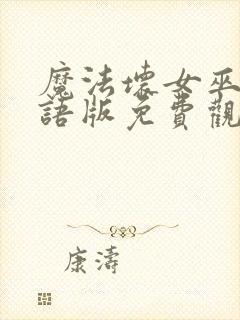 魔法壞女巫
語版免費觀
康濤